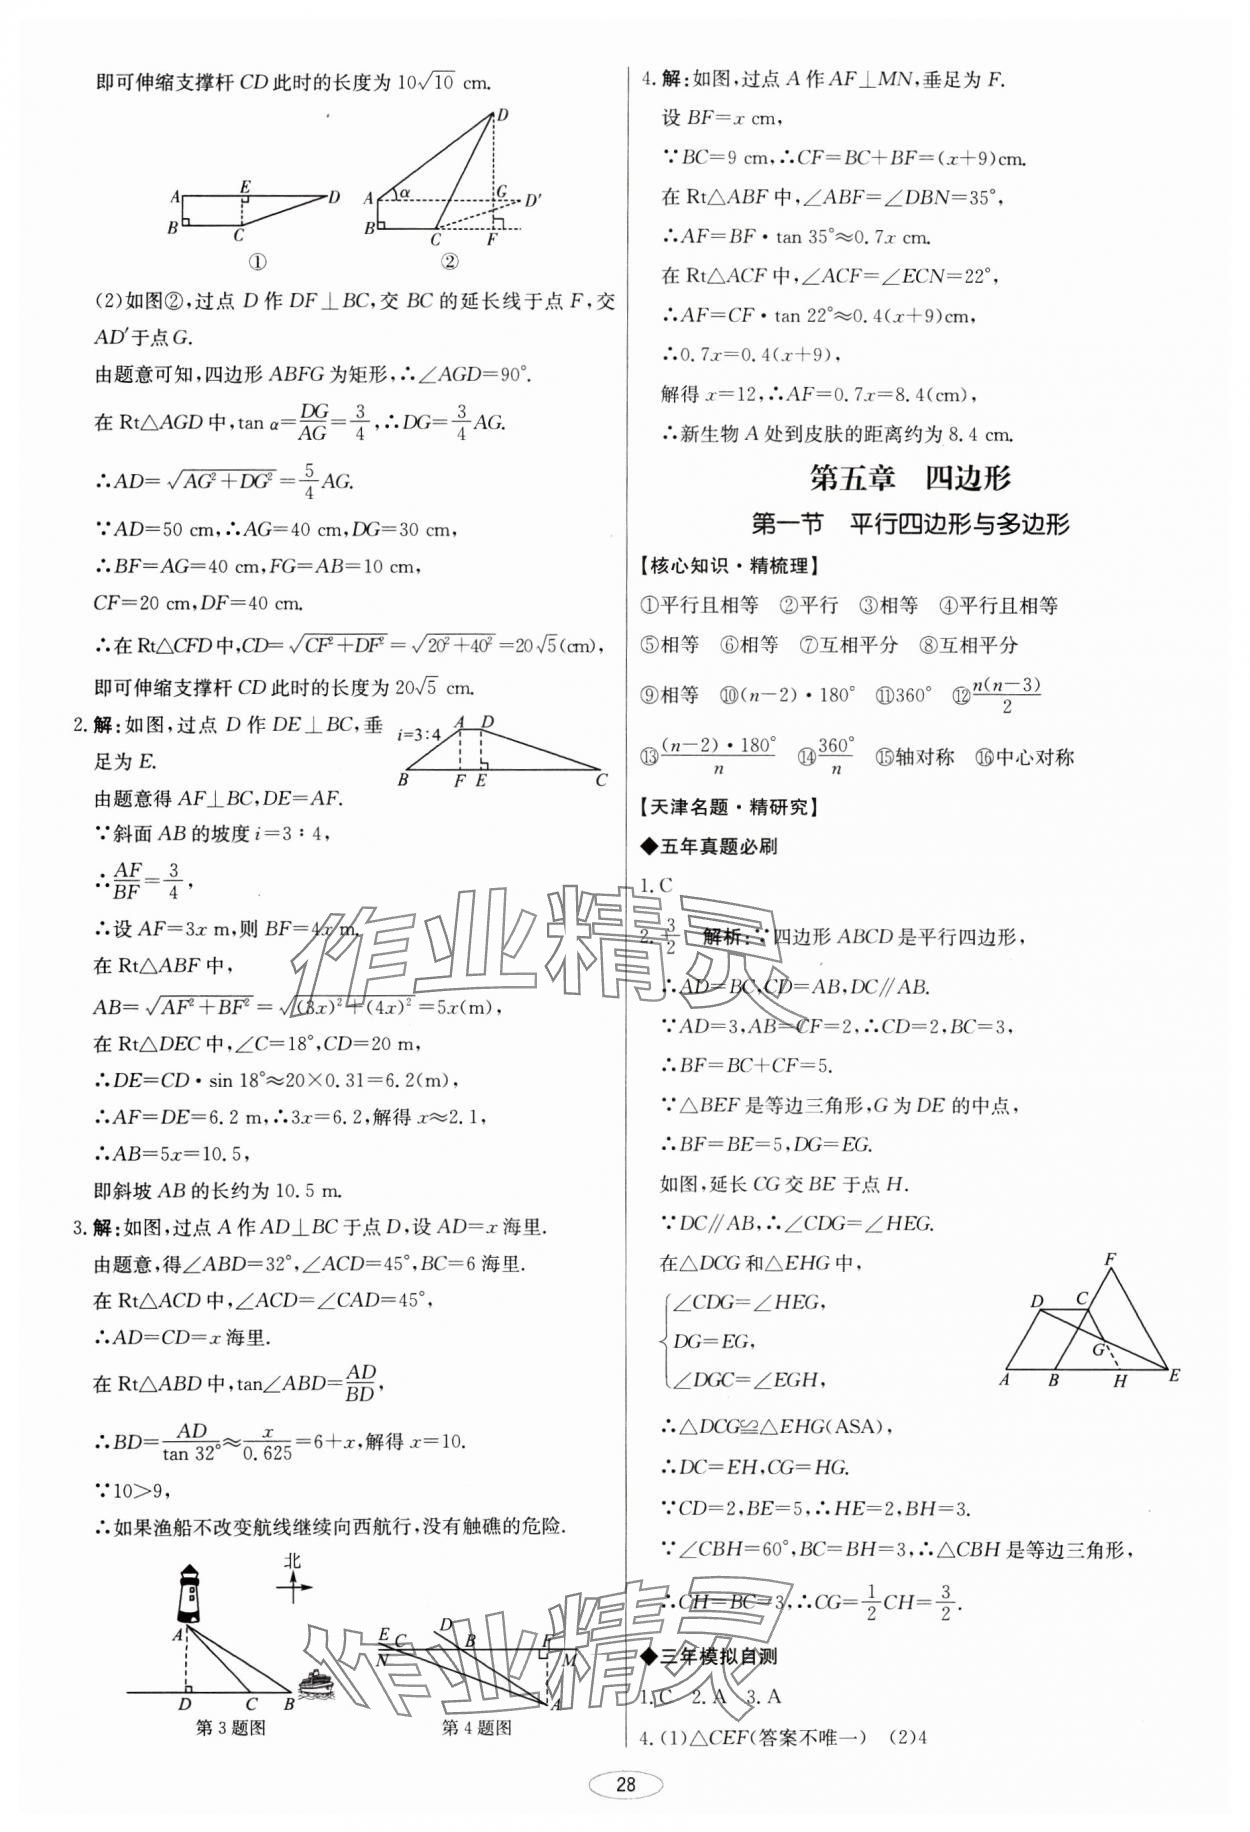 即可伸缩支撑杆 CD 此时的长度为 10√10 cm.
A E D B C ①
D A α G D′ B C F ②
(2)如图②,过点 D 作 DF⊥BC,交 BC 的延长线于点 F,交
AD′于点 G.
由题意可知,四边形 ABFG 为矩形,∴∠AGD=90°.
在 Rt△AGD 中,tan α=DG/AG=3/4,∴DG=3/4AG.
∴AD=√(AG²+DG²)=5/4AG.
∵AD=50 cm,∴AG=40 cm,DG=30 cm,
∴BF=AG=40 cm,FG=AB=10 cm,
CF=20 cm,DF=40 cm.
∴在 Rt△CFD 中,CD=√(CF²+DF²)=√(20²+40²)=20√5(cm),
即可伸缩支撑杆 CD 此时的长度为 20√5 cm.
2.解:如图,过点 D 作 DE⊥BC,垂
足为 E.
i=3:4 A D B F E C
由题意得 AF⊥BC,DE=AF.
∵斜面 AB 的坡度 i=3∶4,
∴AF/BF=3/4,
∴设 AF=3x m,则 BF=4x m.
在 Rt△ABF 中,
AB=√(AF²+BF²)=√((3x)²+(4x)²)=5x(m),
在 Rt△DEC 中,∠C=18°,CD=20 m,
∴DE=CD·sin 18°≈20×0.31=6.2(m),
∴AF=DE=6.2 m,∴3x=6.2,解得 x≈2.1,
∴AB=5x=10.5,
即斜坡 AB 的长约为 10.5 m.
3.解:如图,过点 A 作 AD⊥BC 于点 D,设 AD=x 海里.
由题意,得∠ABD=32°,∠ACD=45°,BC=6 海里.
在 Rt△ACD 中,∠ACD=∠CAD=45°,
∴AD=CD=x 海里.
在 Rt△ABD 中,tan∠ABD=AD/BD,
∴BD=AD/tan 32°≈x/0.625=6+x,解得 x=10.
∵10>9,
∴如果渔船不改变航线继续向西航行,没有触礁的危险.
北
A D C B
第3题图
E C D B F N M A
第4题图
4.解:如图,过点 A 作 AF⊥MN,垂足为 F.
设 BF=x cm,
∵BC=9 cm,∴CF=BC+BF=(x+9)cm.
在 Rt△ABF 中,∠ABF=∠DBN=35°,
∴AF=BF·tan 35°≈0.7x cm.
在 Rt△ACF 中,∠ACF=∠ECN=22°,
∴AF=CF·tan 22°≈0.4(x+9)cm,
∴0.7x=0.4(x+9),
解得 x=12,∴AF=0.7x=8.4(cm),
∴新生物 A 处到皮肤的距离约为 8.4 cm.
第五章 四边形
第一节 平行四边形与多边形
【核心知识·精梳理】
①平行且相等 ②平行 ③相等 ④平行且相等
⑤相等 ⑥相等 ⑦互相平分 ⑧互相平分
⑨相等 ⑩(n-2)·180° ⑪360° ⑫n(n-3)/2
⑬(n-2)·180°/n ⑭360°/n ⑮轴对称 ⑯中心对称
【天津名题·精研究】
◆五年真题必刷
1.C
2.3/2 解析:∵四边形 ABCD 是平行四边形,
∴AD=BC,CD=AB,DC∥AB.
∵AD=3,AB=CF=2,∴CD=2,BC=3,
∴BF=BC+CF=5.
∵△BEF 是等边三角形,G 为 DE 的中点,
∴BF=BE=5,DG=EG.
如图,延长 CG 交 BE 于点 H.
∵DC∥AB,∴∠CDG=∠HEG.
在△DCG 和△EHG 中,
{∠CDG=∠HEG,
DG=EG,
∠DGC=∠EGH,
F D C G A B H E
∴△DCG≌△EHG(ASA),
∴DC=EH,CG=HG.
∵CD=2,BE=5,∴HE=2,BH=3.
∵∠CBH=60°,BC=BH=3,∴△CBH 是等边三角形,
∴CH=BC=3,∴CG=1/2CH=3/2.
◆三年模拟自测
1.C 2.A 3.A
4.(1)△CEF(答案不唯一) (2)4
28
作业精灵
作业精灵